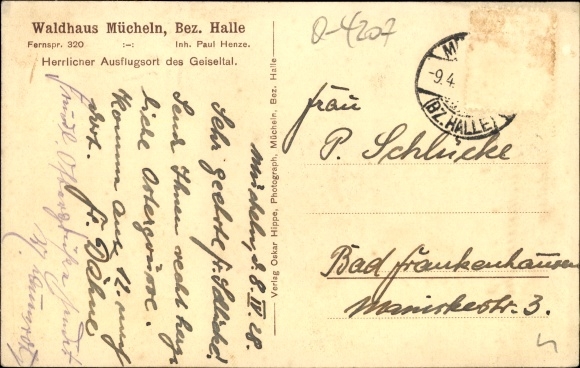 Waldhaus Mücheln, Bez. Halle
Fernspr. 320 :-: Inh. Paul Henze.
Herrlicher Ausflugsort des Geiseltal.
O-4207
-9.4.
(BZ. HALLE)
Mücheln, d. 8. IV. 28.
Sehr geehrte Fr. Schlücke!
Send Ihnen recht herz-
liche Ostergrüsse.
Komme am 12. auf
dort.
Fr. Döhne
Verlag Oskar Hippe, Photograph, Mücheln, Bez. Halle
Frau
P. Schlücke
Bad Frankenhausen